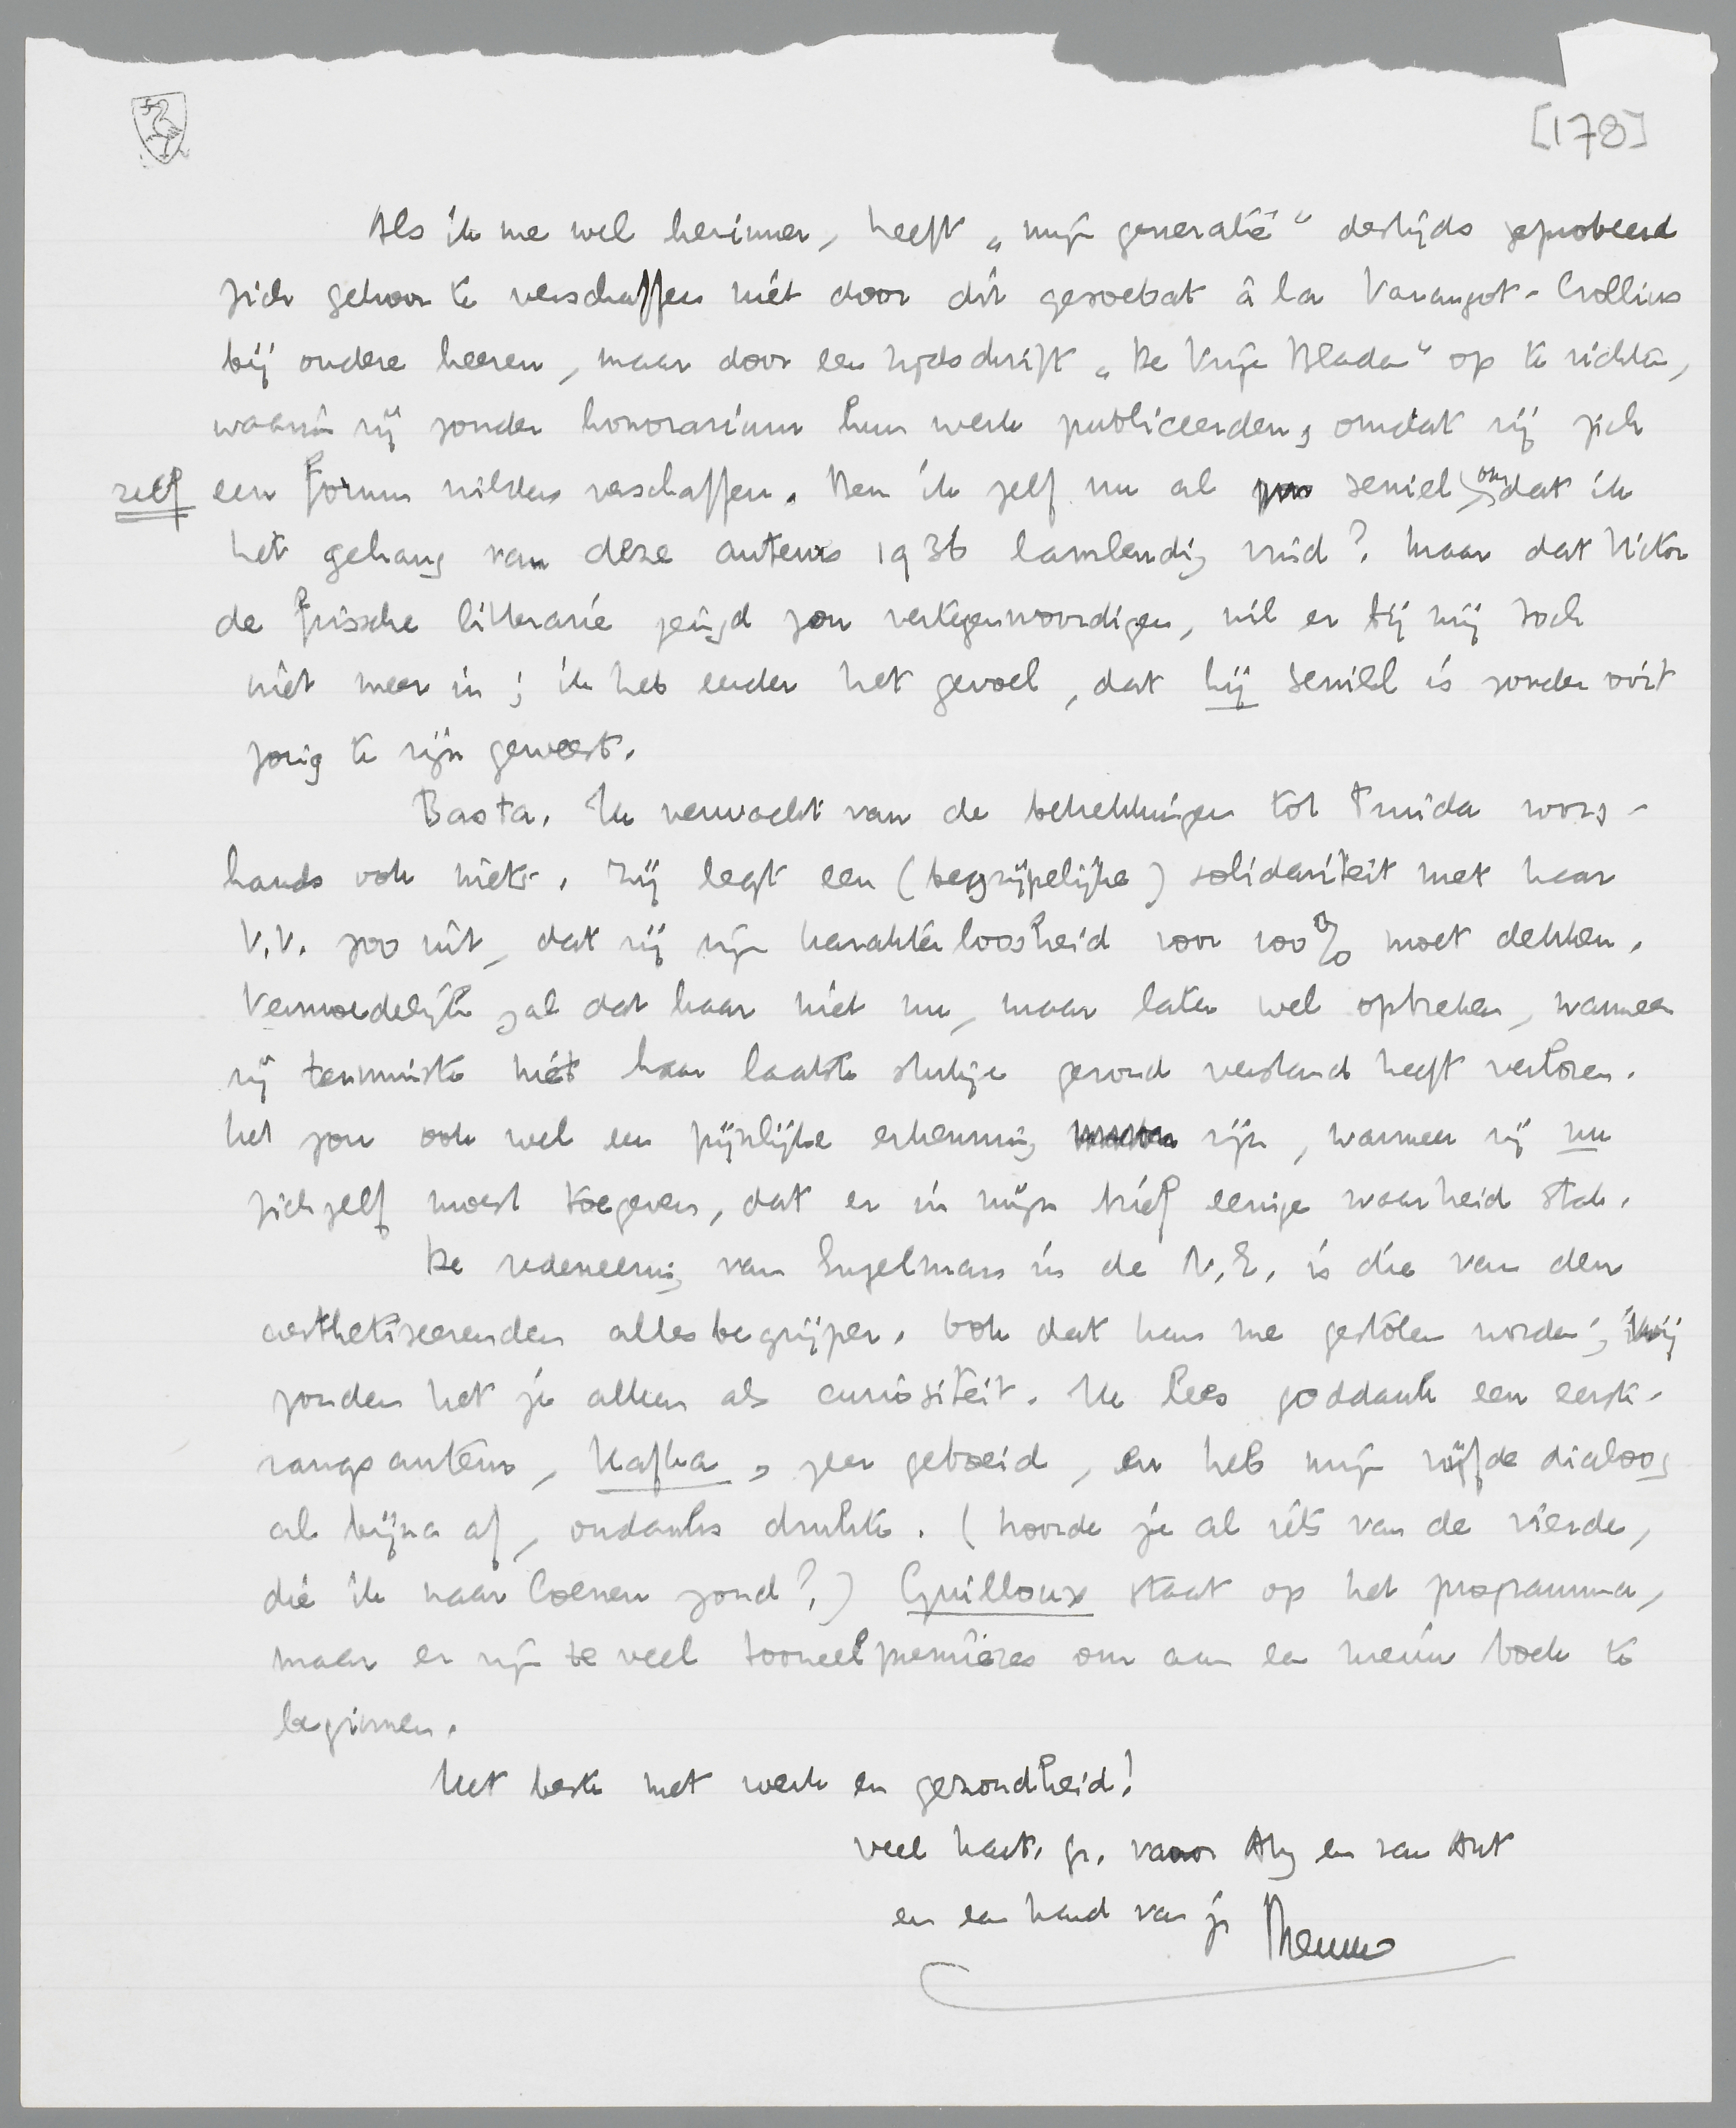 [178]
Als ik me wel herinner, heeft „mijn generatie" destijds geprobeerd
zich gehoor te verschaffen niet door dit gesoebat à la Varangot-Crollius
bij oudere heeren, maar door een tijdschrift „De Vrije Bladen" op te richten,
waarin zij zonder honorarium hun werk publiceerden, omdat zij zich
zelf een forum wilden verschaffen. Ben ik zelf nu al seniel, omdat ik
het gehang van deze auteurs 1936 lamlendig vind? Maar dat Victor
de frissche litteraire jeugd zou vertegenwoordigen, wil er bij mij toch
niet meer in; ik heb eerder het gevoel, dat hij seniel is zonder ooit
jong te zijn geweest.
Basta. Ik verwacht van de betrekkingen tot Truida voors-
hands ook niets. Zij legt een (begrijpelijke) solidariteit met haar
V.V. zoo uit, dat zij zijn karakterloosheid voor 100% moet dekken.
Vermoedelijk zal dat haar niet nu, maar later wel opbreken, wanneer
zij tenminste niet haar laatste stukje gezond verstand heeft verloren.
Het zou ook wel een pijnlijke erkenning zijn, wanneer zij nu
zichzelf moest toegeven, dat er in mijn brief eenige waarheid stak.
De redeneering van Engelman in de N.E. is die van den
aesthetiseerenden allesbegrijper. Ook dat kan me gestolen worden; wij
zonden het je alleen als curiositeit. Ik lees goddank een eerste-
rangsauteur, Kafka, zeer geboeid, en heb mijn vijfde dialoog
al bijna af, ondanks drukte. (Hoorde je al iets van de vierde,
die ik naar Coenen zond?) Guilloux staat op het programma,
maar er zijn te veel tooneelpremières om aan een nieuw boek te
beginnen.
Het beste met werk en gezondheid!
Veel hart. gr. voor Alg en van Ant
en een hand van je Menno